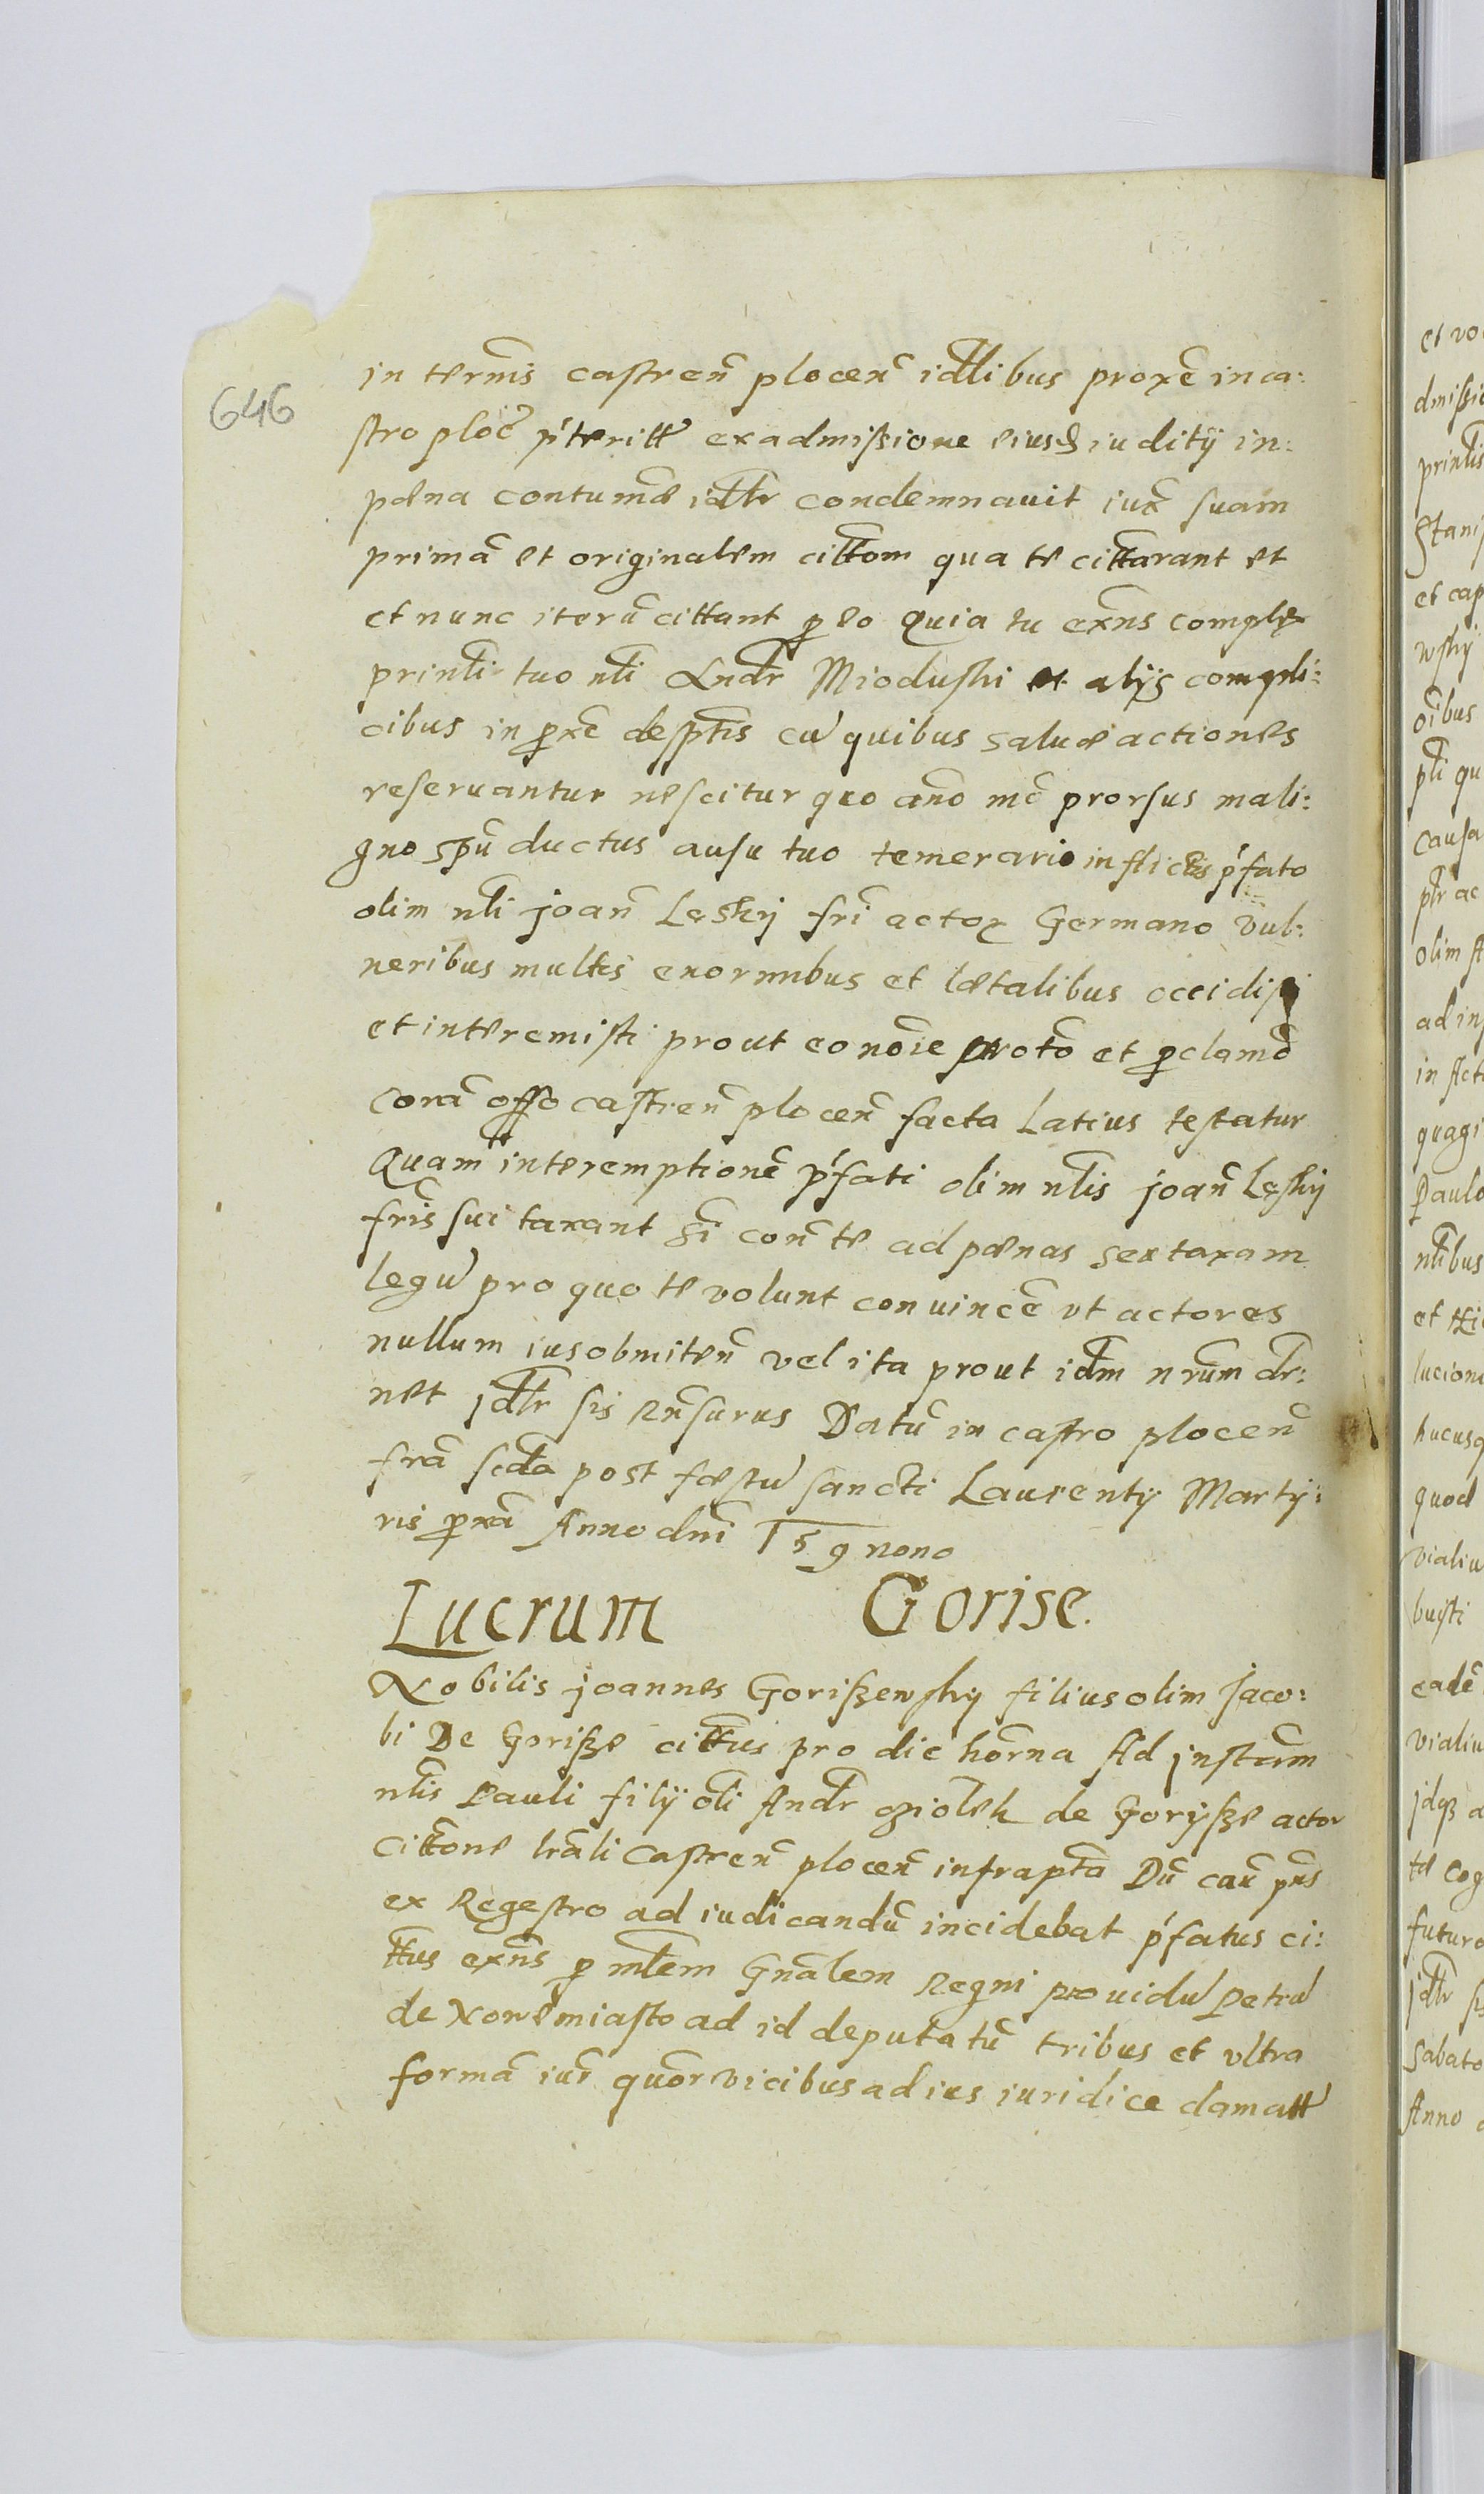 646
in termīs castreñ ploceñ idłłibus proxē in ca:
stro ploc̄ p'terittͧ ex admißione eiusd iuditÿ in:
pœna contumā idłr condemnauit iux̄ suam
primā et originalem cittōm qua te cittārant et
et nunc iterū cittant p eo Quia tu exn̄s complex
prinłi tuo nłi Andr̄ Mioduski et alijs compli:
cibus in prx̄ desptīs cū quibus saluæ actiones
reseruantur nescitur quo anō mō prorsus mali:
gno spū ductus ausu tuo temerario inflictis p'fato
olim nłi joañ Leskij frī actor Germano vul:
neribus multis enormibus et lætalibus occidisti
et interemisti prout eo nōīe protō et pclamō
Corā offō castreñ ploceñ facta Latius testatur
Quam interemptionē p'fati olim nłis joañ Leskij
frīs sui taxant sī coñ te ad pœnas sex taxam
legū pro quo te volunt conuincē vt actores
nullum ius obmiteñ vel ita prout idm̄ nrūm dr̄:
net jdłr sis rn̄surus Datū in castro ploceñ
frā scđa post fæstū sancti Laurentÿ Martÿ:
ris prxā Anno dnī 159 nono
Lucrum Gorise.
Nobilis joannes Gorißewskij filius olim Jaco:
bi De Gorißze cittūs pro die hōrna Ad jnstām
nłis Pauli filÿ ołi Andr̄ oziołek de Gorÿßze actor
Cittōne lrāli Castreñ ploceñ infraptā Dū cau pn̄s
ex Regestro ad iudicandū incidebat p'fatus ci:
ttūs exn̄s p młem Gnālem Regni prouidū Petrū
de Nowemiasto ad id deputatū tribus et vltra
formā iur̄ quōr vicibus ad ius iuridice clamattͧ
et vo
dmißio
prinłis
Stani
et cap
wskij
oībus
płi qu
causa
płr ac
olim
ad in
in Act
quagi
Paulo
nłibus
et
lucion
hucusq
quod
vialiu
buisti
eadē
vialiu
jdqз a
te cog
futuro
jdłr si
Sabato
Anno